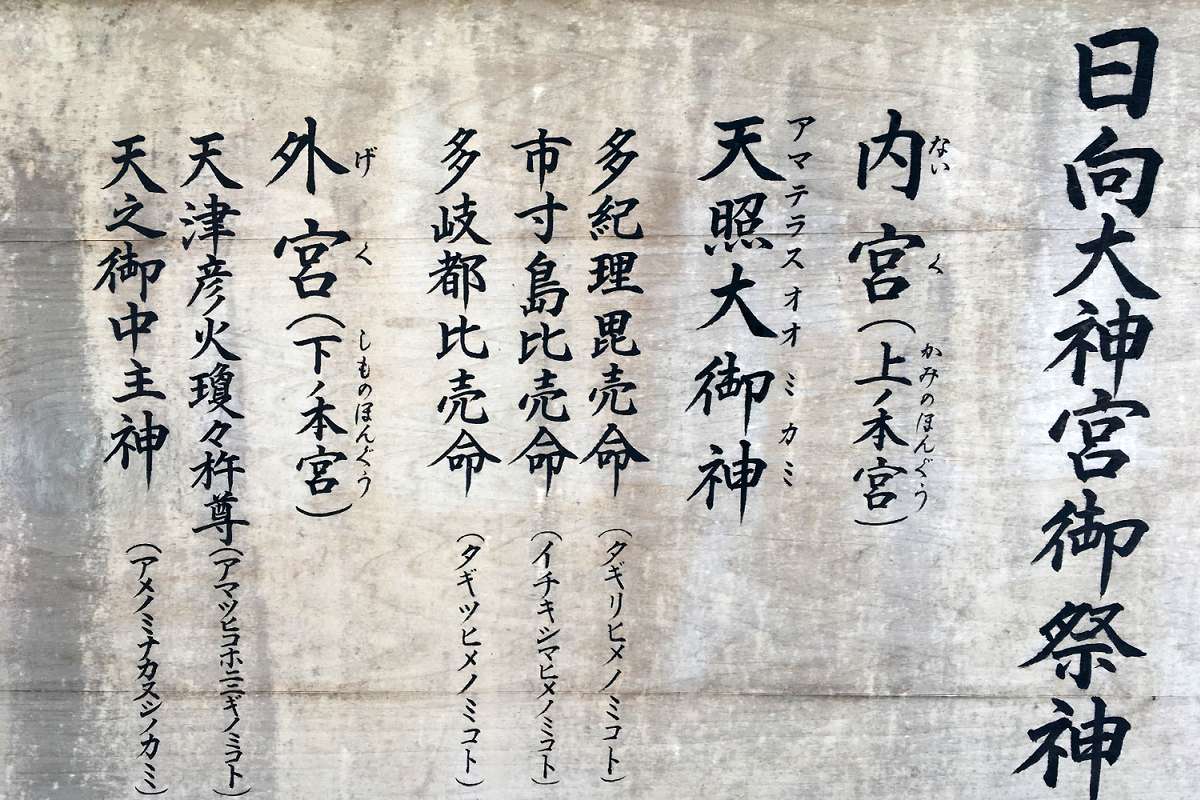 日向大神宮御祭神
内宮(上ノ本宮)
ないく かみのほんぐう
天照大御神
アマテラスオオミカミ
多紀理毘売命(タギリヒメノミコト)
市寸島比売命(イチキシマヒメノミコト)
多岐都比売命(タギツヒメノミコト)
外宮(下ノ本宮)
げく しものほんぐう
天津彦火瓊々杵尊(アマツヒコホニニギノミコト)
天之御中主神(アメノミナカヌシノカミ)